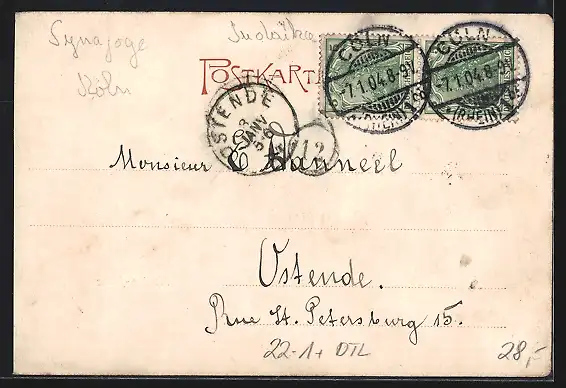 Synagoge
Köln
Judaika
POSTKARTE
CÖLN
7.1.04.8-9V.
(RHEIN)
CÖLN
7.1.04.8-9V.
(RHEIN)
OSTENDE
8
JANV
5-6
112
Monsieur C Banneel
Ostende.
Rue St. Petersburg 15.
22-1+ DTL
28,-